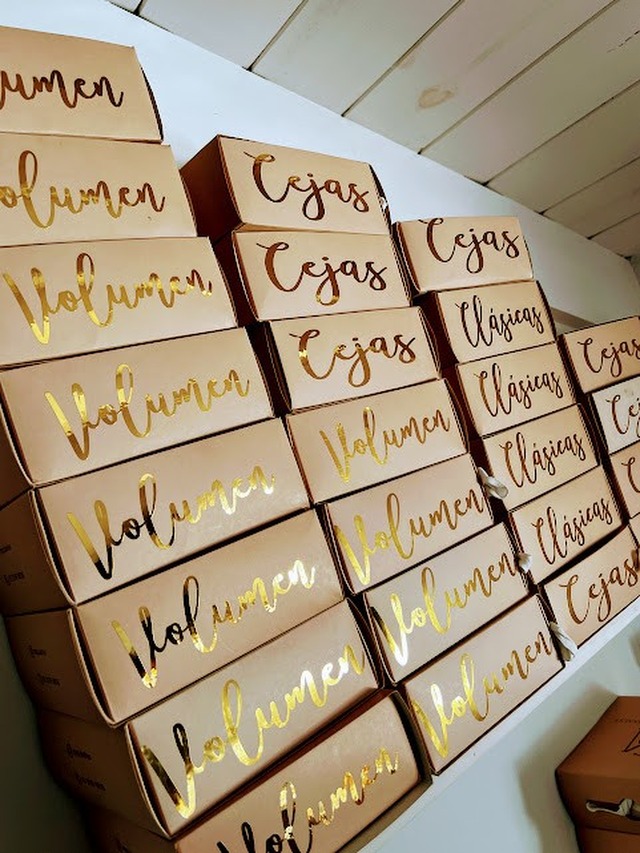 umen
olumen
Volumen
Volumen
Volumen
Volumen
Volumen
Volumen
Cejas
Cejas
Cejas
Volumen
Volumen
Volumen
Volumen
Cejas
Clásicas
Clásicas
Clásicas
Clásicas
Cejas
Cejas
Cej